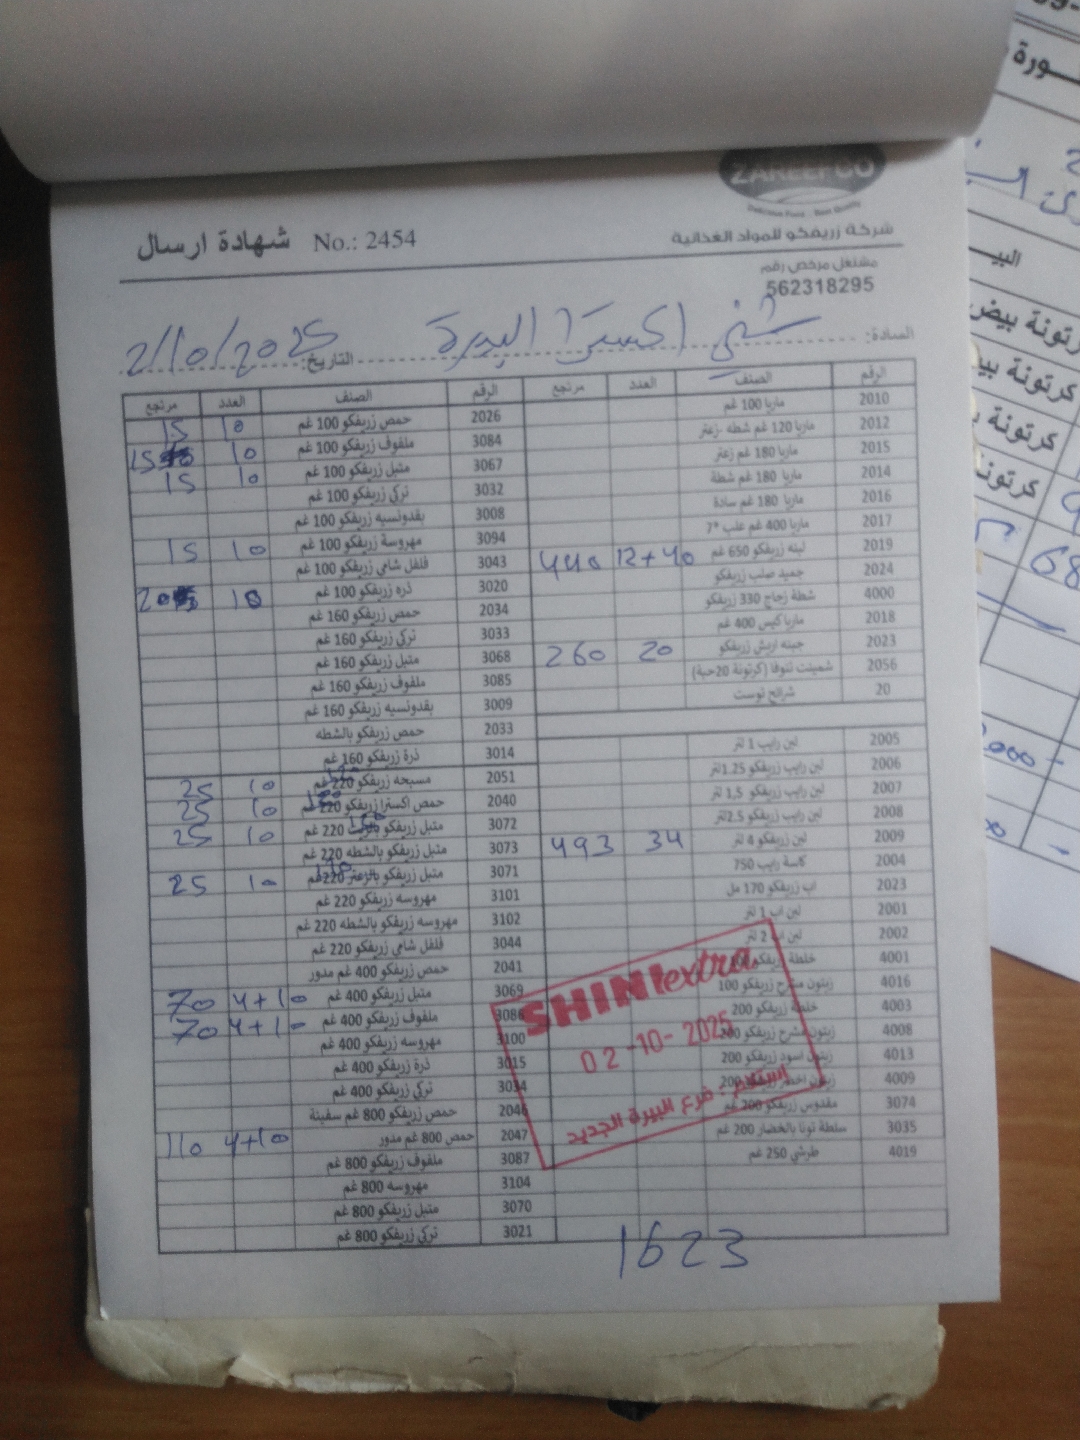 ZAREEFCO
Delicious Food .. Best Quality
شركة زريفكو للمواد الغذائية
شهادة ارسال No.: 2454
مشتغل مرخص رقم
562318295
السادة: شني اكسترا البيرة التاريخ: 2/10/2025
الرقم الصنف العدد مرتجع الرقم الصنف العدد مرتجع
2010 ماريا 100 غم 2026 حمص زريفكو 100 غم 10 15
2012 ماريا 120 غم شطه -زعتر 3084 ملفوف زريفكو 100 غم 10 15
2015 ماريا 180 غم زعتر 3067 متبل زريفكو 100 غم 10 15
2014 ماريا 180 غم شطة 3032 تركي زريفكو 100 غم
2016 ماريا 180 غم سادة 3008 بقدونسيه زريفكو 100 غم
2017 ماريا 400 غم علب 7* 3094 مهروسة زريفكو 100 غم 10 15
2019 لبنه زريفكو 650 غم 12+40 440 3043 فلفل شامي زريفكو 100 غم
2024 جميد صلب زريفكو 3020 ذره زريفكو 100 غم 10 20
4000 شطة زجاج 330 زريفكو 2034 حمص زريفكو 160 غم
2018 ماريا كيس 400 غم 3033 تركي زريفكو 160 غم
2023 جبنه اريش زريفكو 20 260 3068 متبل زريفكو 160 غم
2056 شمينت تنوفا (كرتونة 20حبة) 3085 ملفوف زريفكو 160 غم
20 شرائح توست 3009 بقدونسيه زريفكو 160 غم
2033 حمص زريفكو بالشطه
2005 لبن رايب 1 لتر 3014 ذرة زريفكو 160 غم
2006 لبن رايب زريفكو 1.25لتر 2051 مسبحه زريفكو 220 غم 10 25
2007 لبن رايب زريفكو 1,5 لتر 2040 حمص اكسترا زريفكو 220 غم 10 25
2008 لبن رايب زريفكو 2.5لتر 3072 متبل زريفكو بالزيت 220 غم 10 25
2009 لبن زريفكو 4 لتر 34 493 3073 متبل زريفكو بالشطه 220 غم
2004 كاسة رايب 750 3071 متبل زريفكو بالزعتر 220غم 10 25
2023 اب زريفكو 170 مل 3101 مهروسه زريفكو 220 غم
2001 لبن اب 1 لتر 3102 مهروسه زريفكو بالشطه 220 غم
2002 لبن اب 2 لتر 3044 فلفل شامي زريفكو 220 غم
4001 خلطة زريفكو 100 2041 حمص زريفكو 400 غم مدور
4016 زيتون مشرح زريفكو 100 3069 متبل زريفكو 400 غم 4+10 70
4003 خلطة زريفكو 200 3086 ملفوف زريفكو 400 غم 4+10 70
4008 زيتون مشرح زريفكو 200 3100 مهروسه زريفكو 400 غم
4013 زيتون اسود زريفكو 200 3015 ذرة زريفكو 400 غم
4009 زيتون اخضر زريفكو 200 3034 تركي زريفكو 400 غم
3074 مقدوس زريفكو 200 غم 2046 حمص زريفكو 800 غم سفينة
3035 سلطة تونا بالخضار 200 غم 2047 حمص 800 غم مدور 4+10 110
4019 طرشي 250 غم 3087 ملفوف زريفكو 800 غم
3104 مهروسه 800 غم
3070 متبل زريفكو 800 غم
3021 تركي زريفكو 800 غم
1623
SHINI extra
02-10-2025
استلام : فرع البيرة الجديد